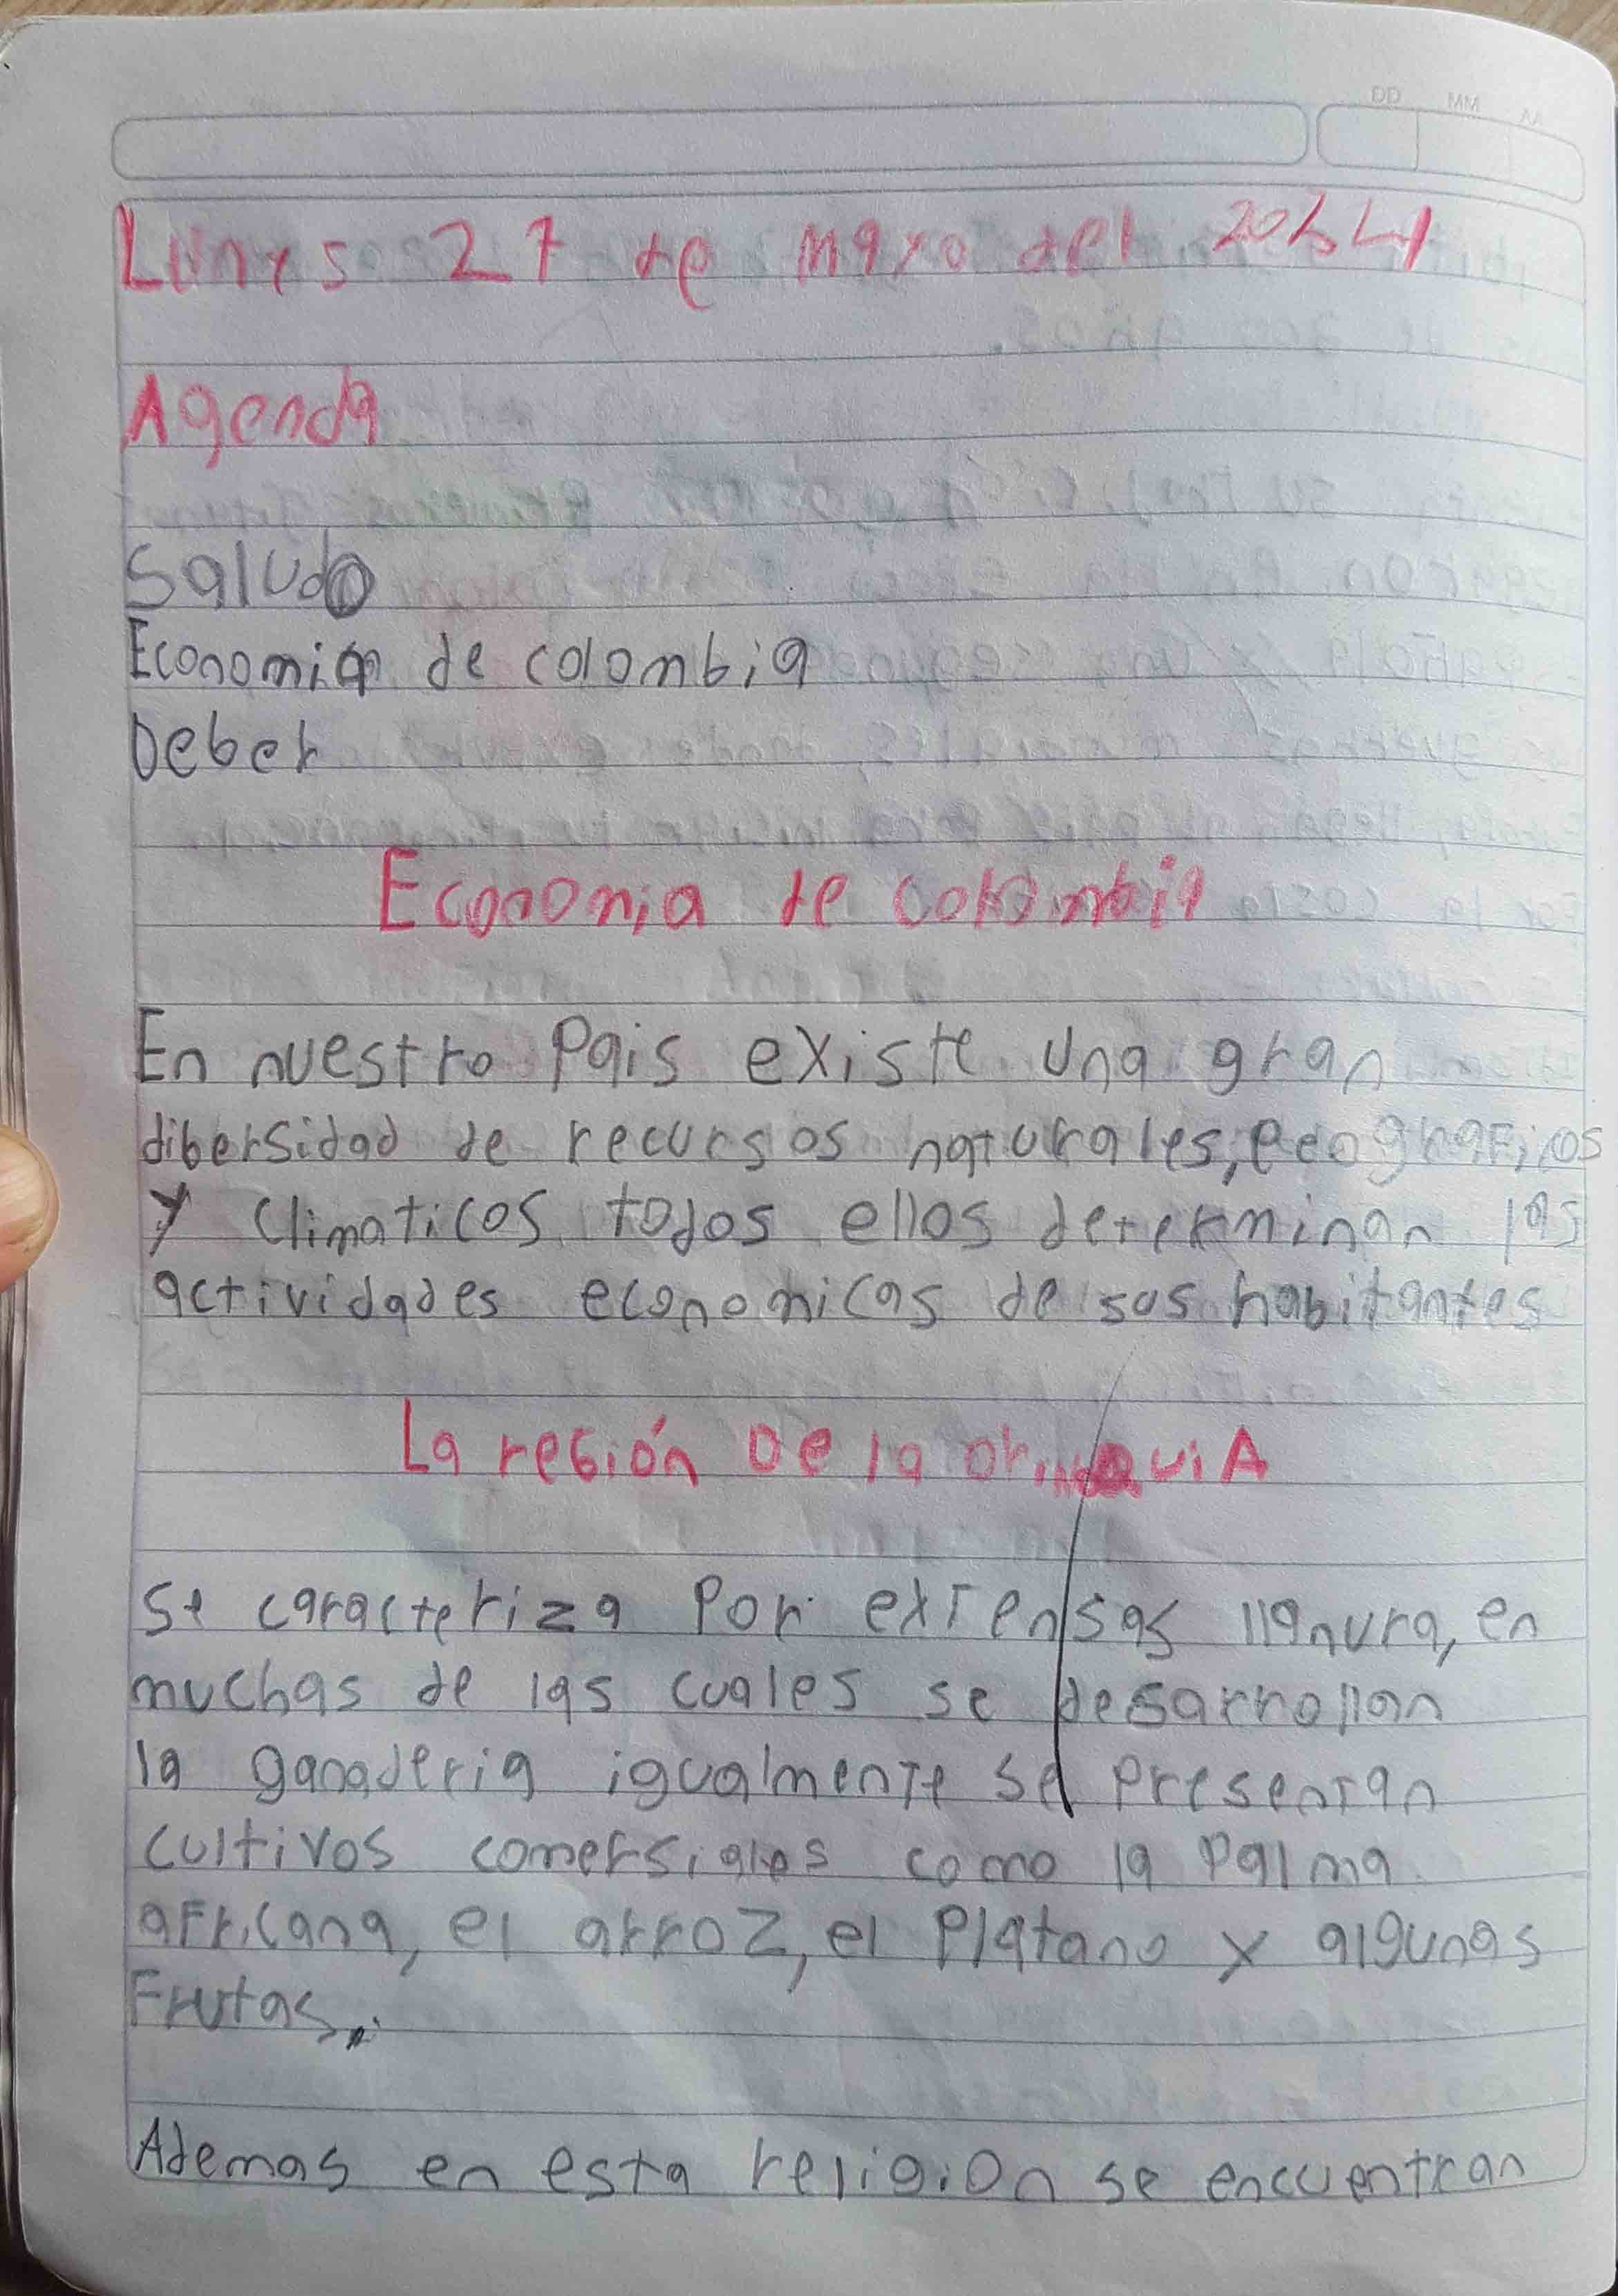 Lunes 27 de mayo del 2024
Agenda
Saludo
Economia de colombia
Deber
Economia de colombia
En nuestro Pais existe una gran
dibersidad de recursos naturales, geograficos
y climaticos todos ellos determinan las
actividades economicas de sus habitantes
La región De la orinoquiA
Se caracteriza Por extensas llanura, en
muchas de las cuales se desarrollan
la ganaderia igualmente se presentan
cultivos comersiales como la Palma
africana, el arroz, el Platano y algunas
Frutas.
Ademas en esta religion se encuentran